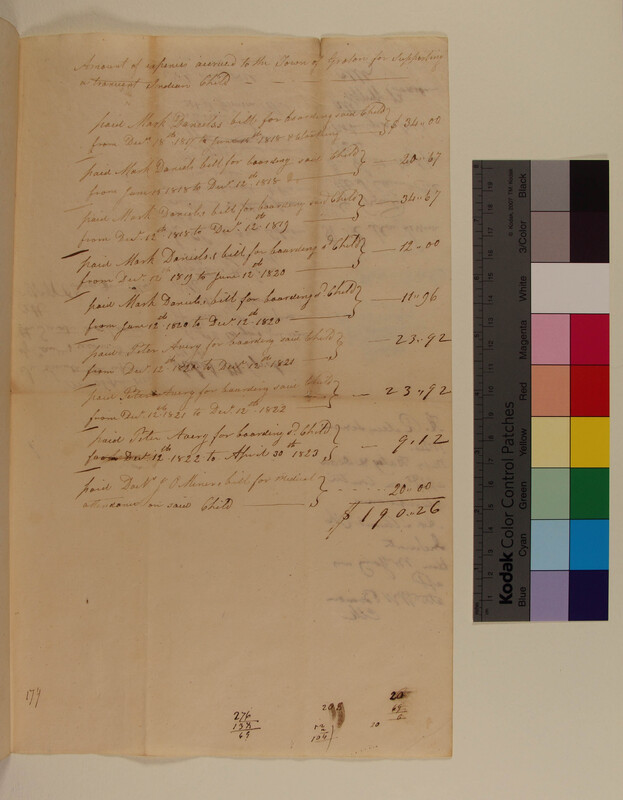 Amount of expenses accrued to the Town of Groton for Supporting
a transient Indian Child
paid Mark Daniels bill for boarding said Child
from Decr 18th 1817 to June 1818 $34-00
paid Mark Daniels bill for boarding said Child
from June 12 1818 to Decr 12th 1818 20-67
paid Mark Daniels bill for boarding said Child
from Decr 12th 1818 to Decr 12th 1819 34-67
paid Mark Daniels bill for boarding sd Child
from Decr 12th 1819 to June 12th 1820 12-00
paid Mark Daniels bill for boarding sd Child
from June 12th 1820 to Decr 12th 1820 11-96
paid Peter Avery for boarding said Child
from Decr 12th 1820 to Decr 12th 1821 23-92
paid Peter Avery for boarding said Child
from Decr 12th 1821 to Decr 12th 1822 23-92
paid Peter Avery for boarding sd Child
from Decr 12th 1822 to April 30th 1823 9,12
paid Doctr J O Miners bill for medical
attendance on said Child 20-00
$190-26
179
276
138
69
Kodak Color Control Patches
© Kodak, 2007 TM: Kodak
Blue
Cyan
Green
Yellow
Red
Magenta
White
3/Color
Black